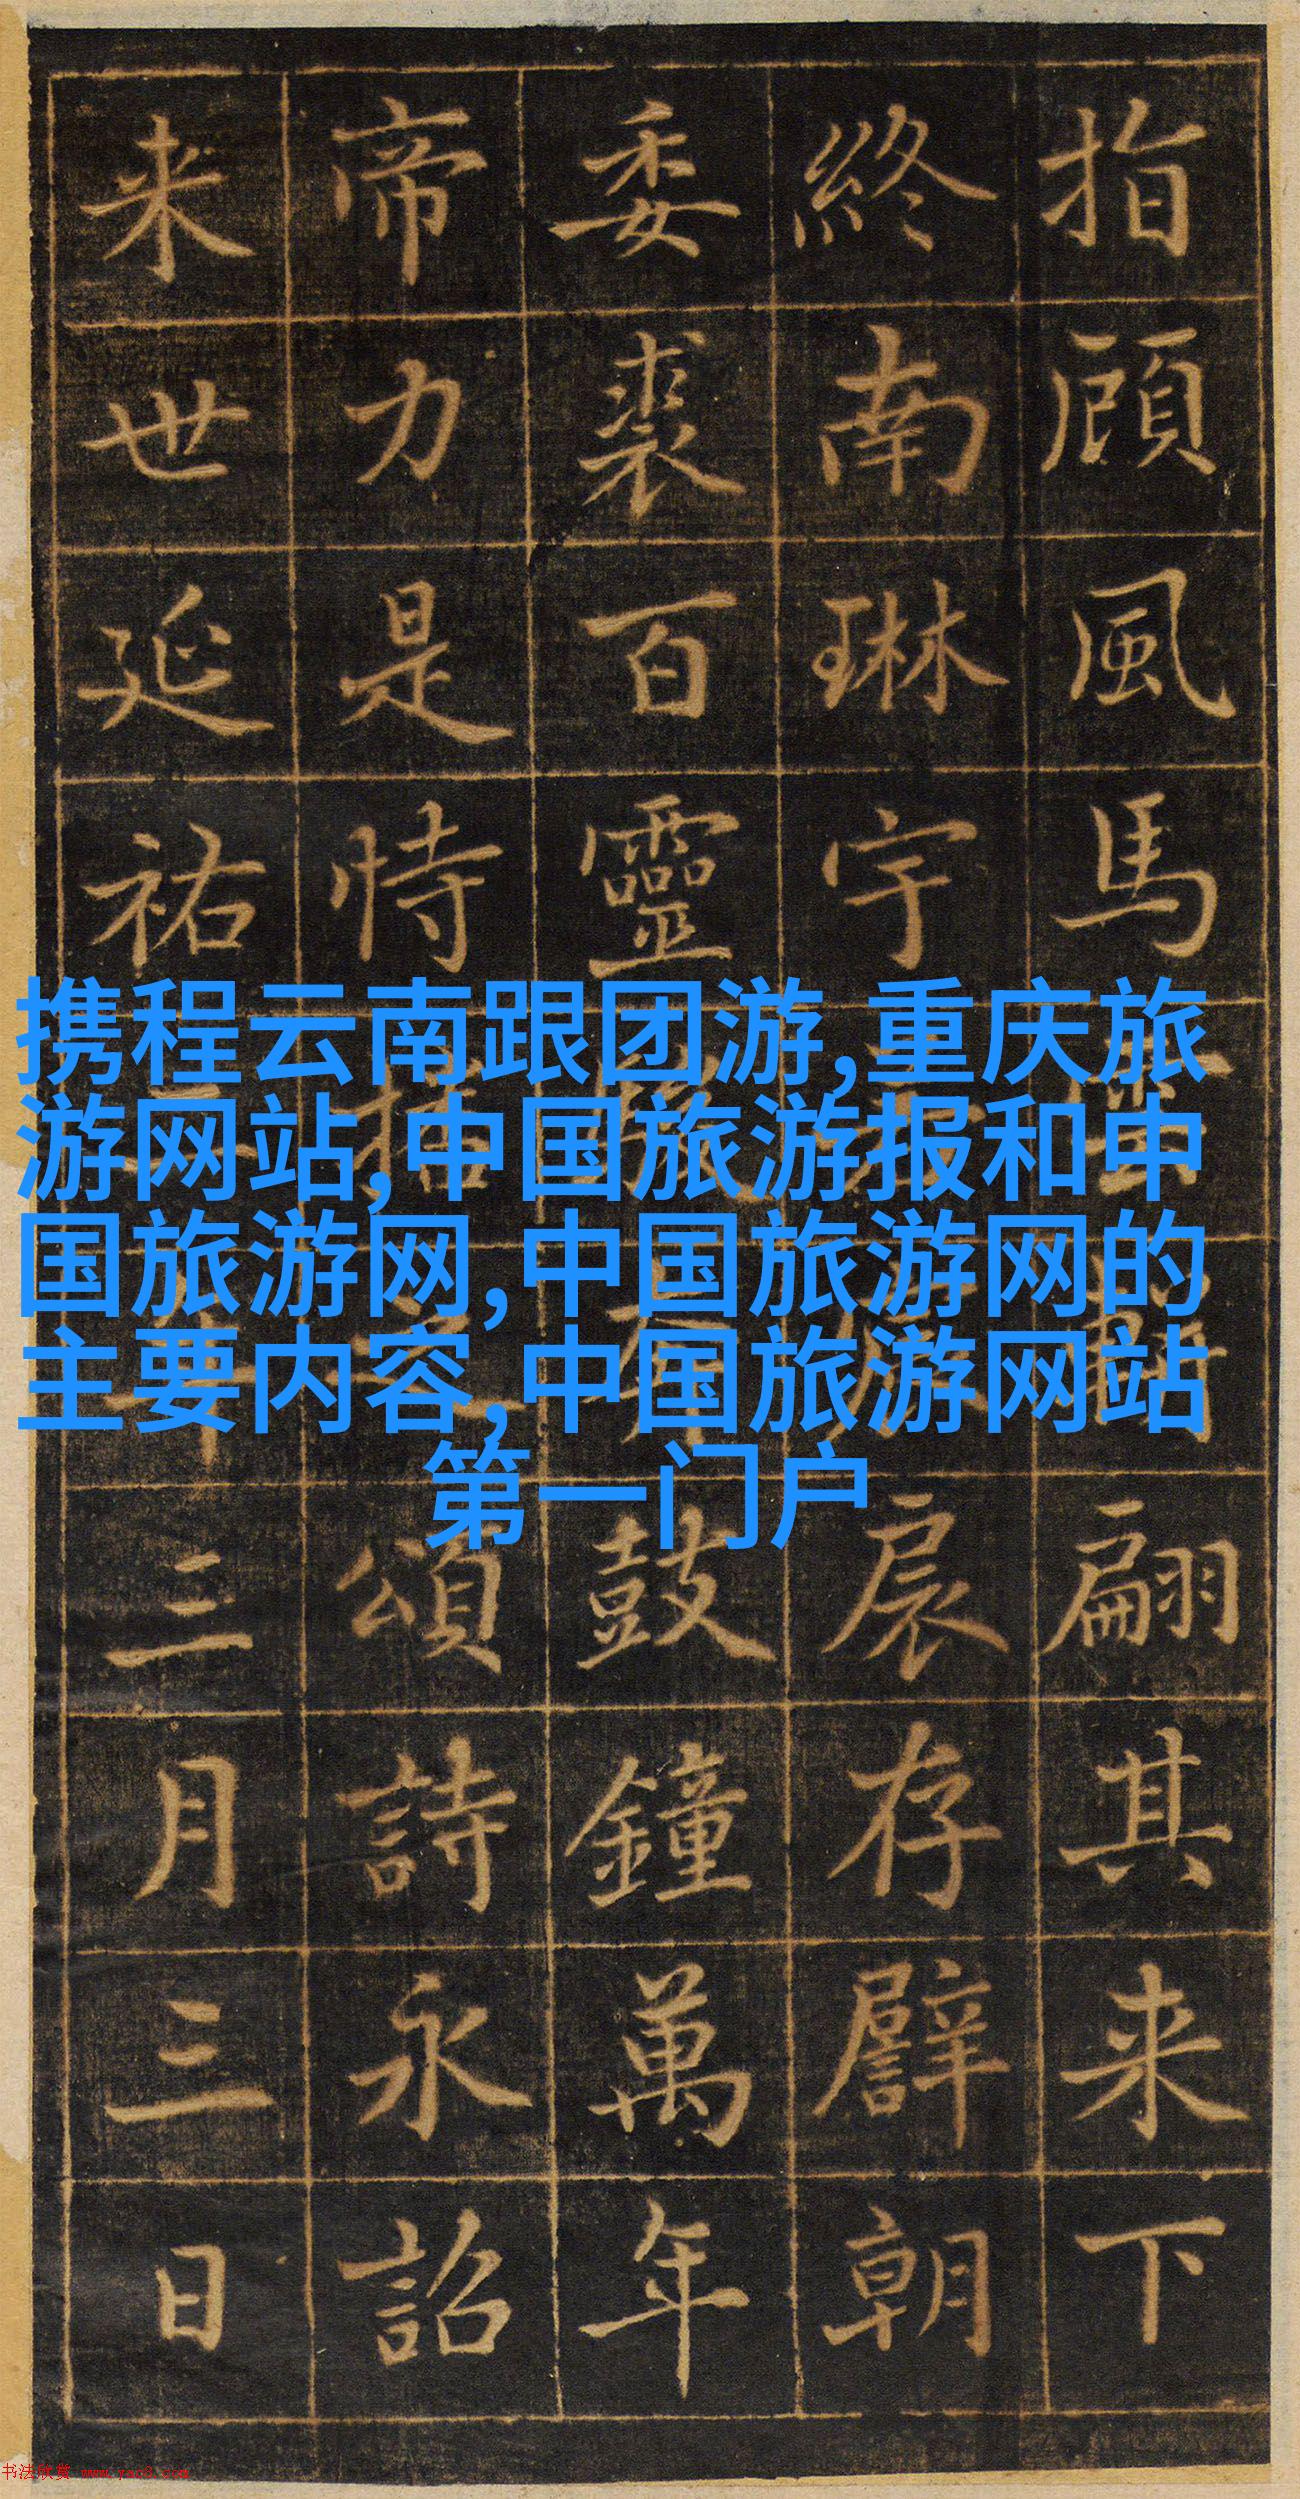 指顧風馬翩其来下
終南琳宇扆存譬朝
委裘百靈鼓鐘萬年
帝力是恃頌詩永詔
来世延祐年三月三日
携程云南跟团游,重庆旅
游网站,中国旅游报和中
国旅游网,中国旅游网的
主要内容,中国旅游网站
第一门户
书法欣赏 www.yac8.com